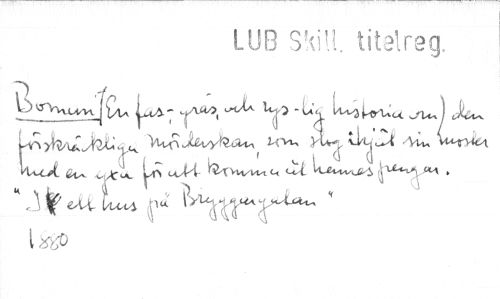 LUB Skill. titelreg.
Bomuri (En fas-, gräs, och rys-lig historia om) den
förskräckliga mörderskan, som slog ihjäl sin moster
med en yxa för att komma åt hennes pengar.
"I ett hus på Bryggargatan"
1880